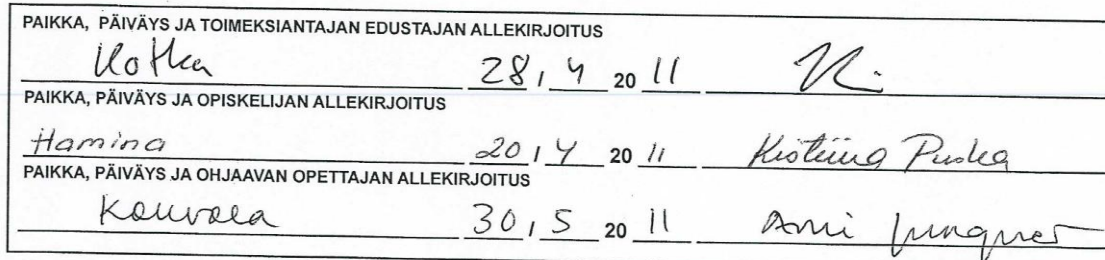 PAIKKA, PÄIVÄYS JA TOIMEKSIANTAJAN EDUSTAJAN ALLEKIRJOITUS
Kotka 28 / 4 20 11
PAIKKA, PÄIVÄYS JA OPISKELIJAN ALLEKIRJOITUS
Hamina 20 / 4 20 11 Kristiina Puska
PAIKKA, PÄIVÄYS JA OHJAAVAN OPETTAJAN ALLEKIRJOITUS
Kouvola 30 / 5 20 11